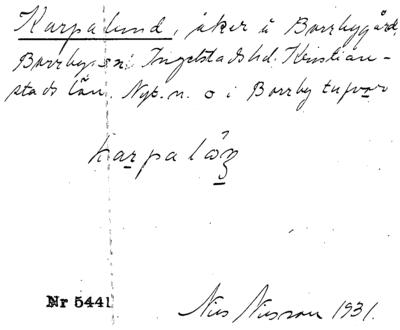 Karpalund, åker å Borrbygård,
Borrby sn, Ingelstads hd. Kristian-
stads län. Nyb. n. o i Borrby
karpa
Nr 5441
Nils Nilsson 1931.